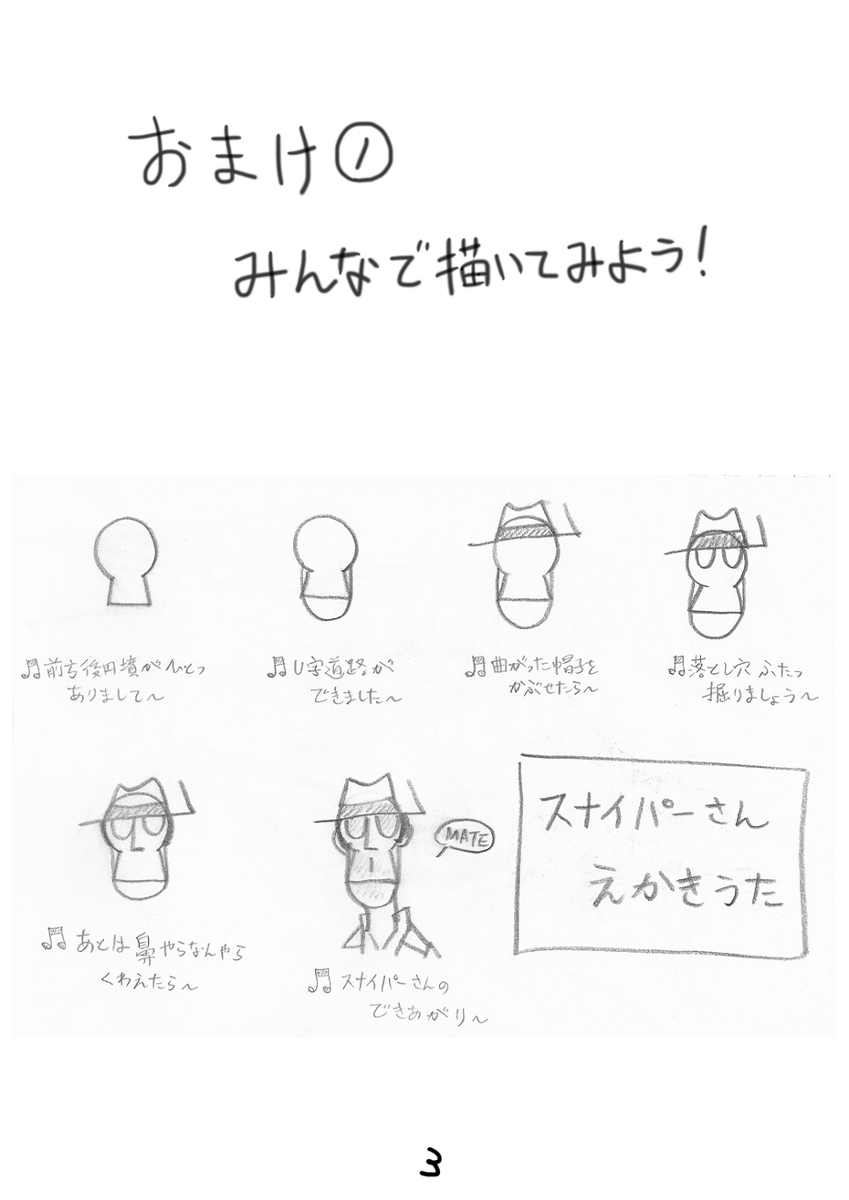 おまけ①
みんなで描いてみよう!
♫前方後円墳がひとつ
ありまして〜
♫U字道路が
できました〜
♫曲がった帽子を
かぶせたら〜
♫落とし穴 ふたつ
掘りましょう〜
♫あとは鼻やらなんやら
くわえたら〜
MATE
♫スナイパーさんの
できあがり〜
スナイパーさん
えかきうた
3